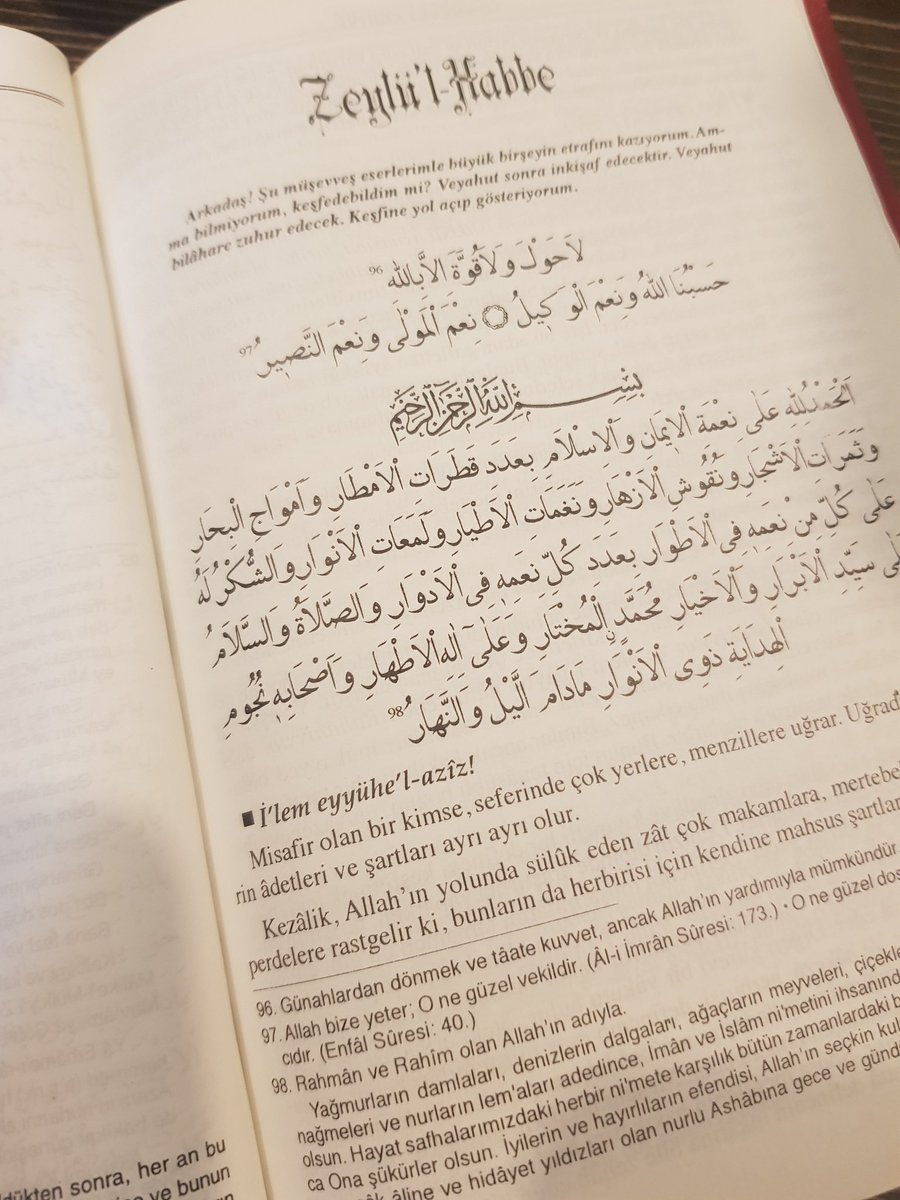 Zeylü'l-Habbe
Arkadaş! Şu müşevveş eserlerimle büyük birşeyin etrafını kazıyorum. Am-
ma bilmiyorum, keşfedebildim mi? Veyahut sonra inkişaf edecektir. Veyahut
bilâhare zuhur edecek. Keşfine yol açıp gösteriyorum.
لَاحَوْلَ وَلَاقُوَّةَ اِلَّابِاللّٰهِ 96
حَسْبُنَا اللّٰهُ وَنِعْمَ الْوَكِيلُ ۞ نِعْمَ الْمَوْلٰى وَنِعْمَ النَّصِيرُ 97
بِسْمِ اللّٰهِ الرَّحْمٰنِ الرَّحِيمِ
اَلْحَمْدُلِلّٰهِ عَلٰى نِعْمَةِ الْاِيمَانِ وَالْاِسْلَامِ بِعَدَدِ قَطَرَاتِ الْاَمْطَارِ وَاَمْوَاجِ الْبِحَارِ
وَثَمَرَاتِ الْاَشْجَارِ وَنُقُوشِ الْاَزْهَارِ وَنَغَمَاتِ الْاَطْيَارِ وَلَمَعَاتِ الْاَنْوَارِ وَالشُّكْرُ لَهُ
عَلٰى كُلٍّ مِنْ نِعَمِهِ فِى الْاَطْوَارِ بِعَدَدِ كُلِّ نِعَمِهِ فِى الْاَدْوَارِ وَالصَّلَاةُ وَالسَّلَامُ
سَيِّدِ الْاَبْرَارِ وَالْاَخْيَارِ مُحَمَّدٍ الْمُخْتَارِ وَعَلٰى اٰلِهِ الْاَطْهَارِ وَاَصْحَابِهِ نُجُومِ
الْهِدَايَةِ ذَوِى الْاَنْوَارِ مَادَامَ الَّيْلُ وَالنَّهَارُ 98
■ İ'lem eyyühe'l-azîz!
Misafir olan bir kimse, seferinde çok yerlere, menzillere uğrar. Uğrad
rin âdetleri ve şartları ayrı ayrı olur.
Kezâlik, Allah'ın yolunda sülûk eden zât çok makamlara, mertebe
perdelere rastgelir ki, bunların da herbirisi için kendine mahsus şartlar
96. Günahlardan dönmek ve tâate kuvvet, ancak Allah'ın yardımıyla mümkündür.
97. Allah bize yeter; O ne güzel vekildir. (Âl-i İmrân Sûresi: 173.) • O ne güzel dos
cıdır. (Enfâl Sûresi: 40.)
98. Rahmân ve Rahîm olan Allah'ın adıyla.
Yağmurların damlaları, denizlerin dalgaları, ağaçların meyveleri, çiçekle
nağmeleri ve nurların lem'aları adedince, Îmân ve İslâm ni'metini ihsanınd
olsun. Hayat safhalarımızdaki herbir ni'mete karşılık bütün zamanlardaki b
ca Ona şükürler olsun. İyilerin ve hayırlıların efendisi, Allah'ın seçkin kul
âline ve hidâyet yıldızları olan nurlu Ashâbına gece ve günd
dükten sonra, her an bu
ve bunun